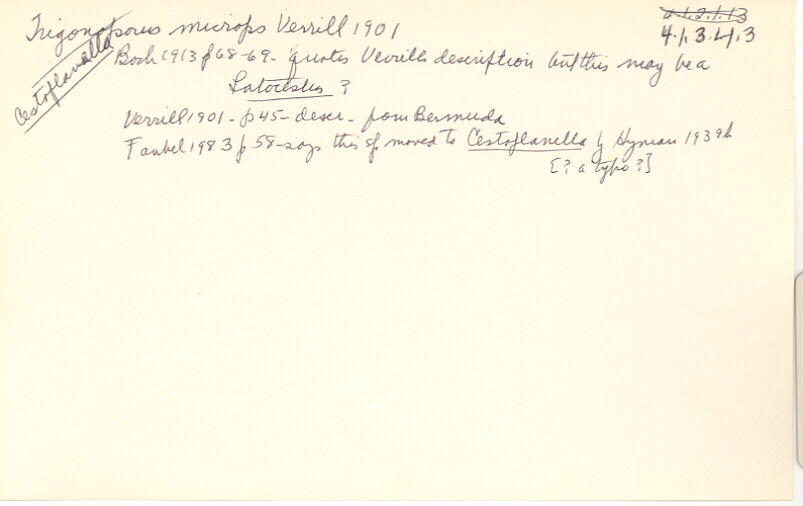 Trigonoporus microps Verrill 1901
4.1.2.1.13
4.1.3.4.3
Cestoplanella
Bock 1913 p 68-69 - quotes Verrills description but this may be a
Latocestus ?
Verrill 1901 - p 45 - descr - from Bermuda
Faubel 1983 p 58 - says this sp moved to Cestoplanella by Hyman 1939b
[? a typo ?]